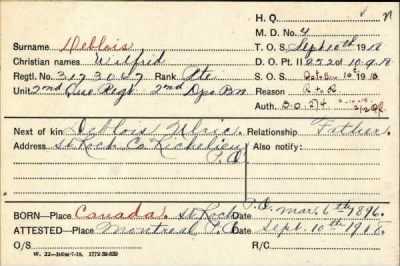 H. Q.
M. D. No. 4
Surname Deblois T. O. S. Sept 10th 1918
Christian names Wilfrid D. O. Pt. II 252 of 10.9.18
Regtl. No. 3173067 Rank Pte S. O. S. October 10th 1918
Unit 2nd Que Regt 2nd Dpo Bn Reason
Auth. D.O. 274
Next of kin Deblois Ulric. Relationship Father.
Address St. Roch Co. Richelieu Also notify:
P. Q
BORN—Place Canada. St. Roch P. Q. Date Mar. 6th 1896.
ATTESTED—Place Montreal P. Q Date Sept. 10th 1918.
O/S R/C